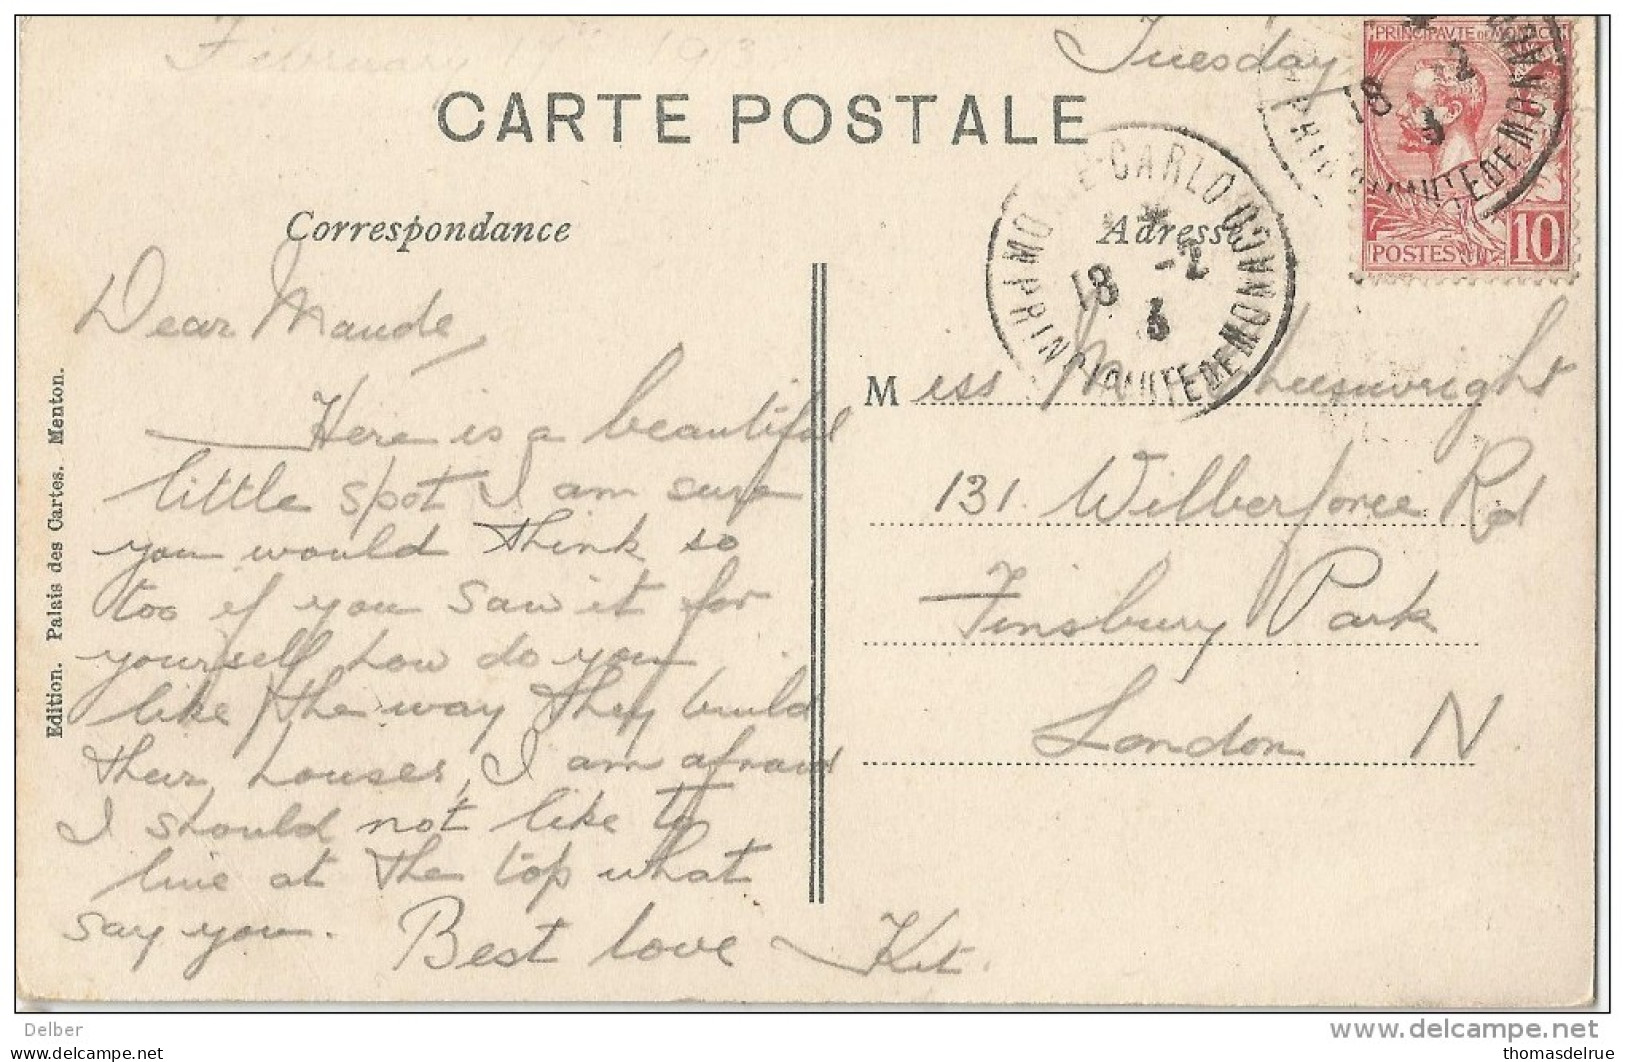 February 17th 193
Tuesday
CARTE POSTALE
PRINCIPAUTÉ DE MONACO
POSTES
10
MONTE-CARLO
PRINCIPAUTE DE MONACO
18 -2
3
Correspondance
Adresse
Dear Maude,
Here is a beautiful
little spot I am sure
you would think so
too if you saw it for
yourself, how do you
like the way they build
their houses, I am afraid
I should not like to
live at the top what
say you. Best love
Kit.
Miss M Cheesewright
131. Wilberforce Rd
Finsbury Park
London N
Edition. Palais des Cartes. Menton.
Delber
www.delcampe.net
thomasdelrue